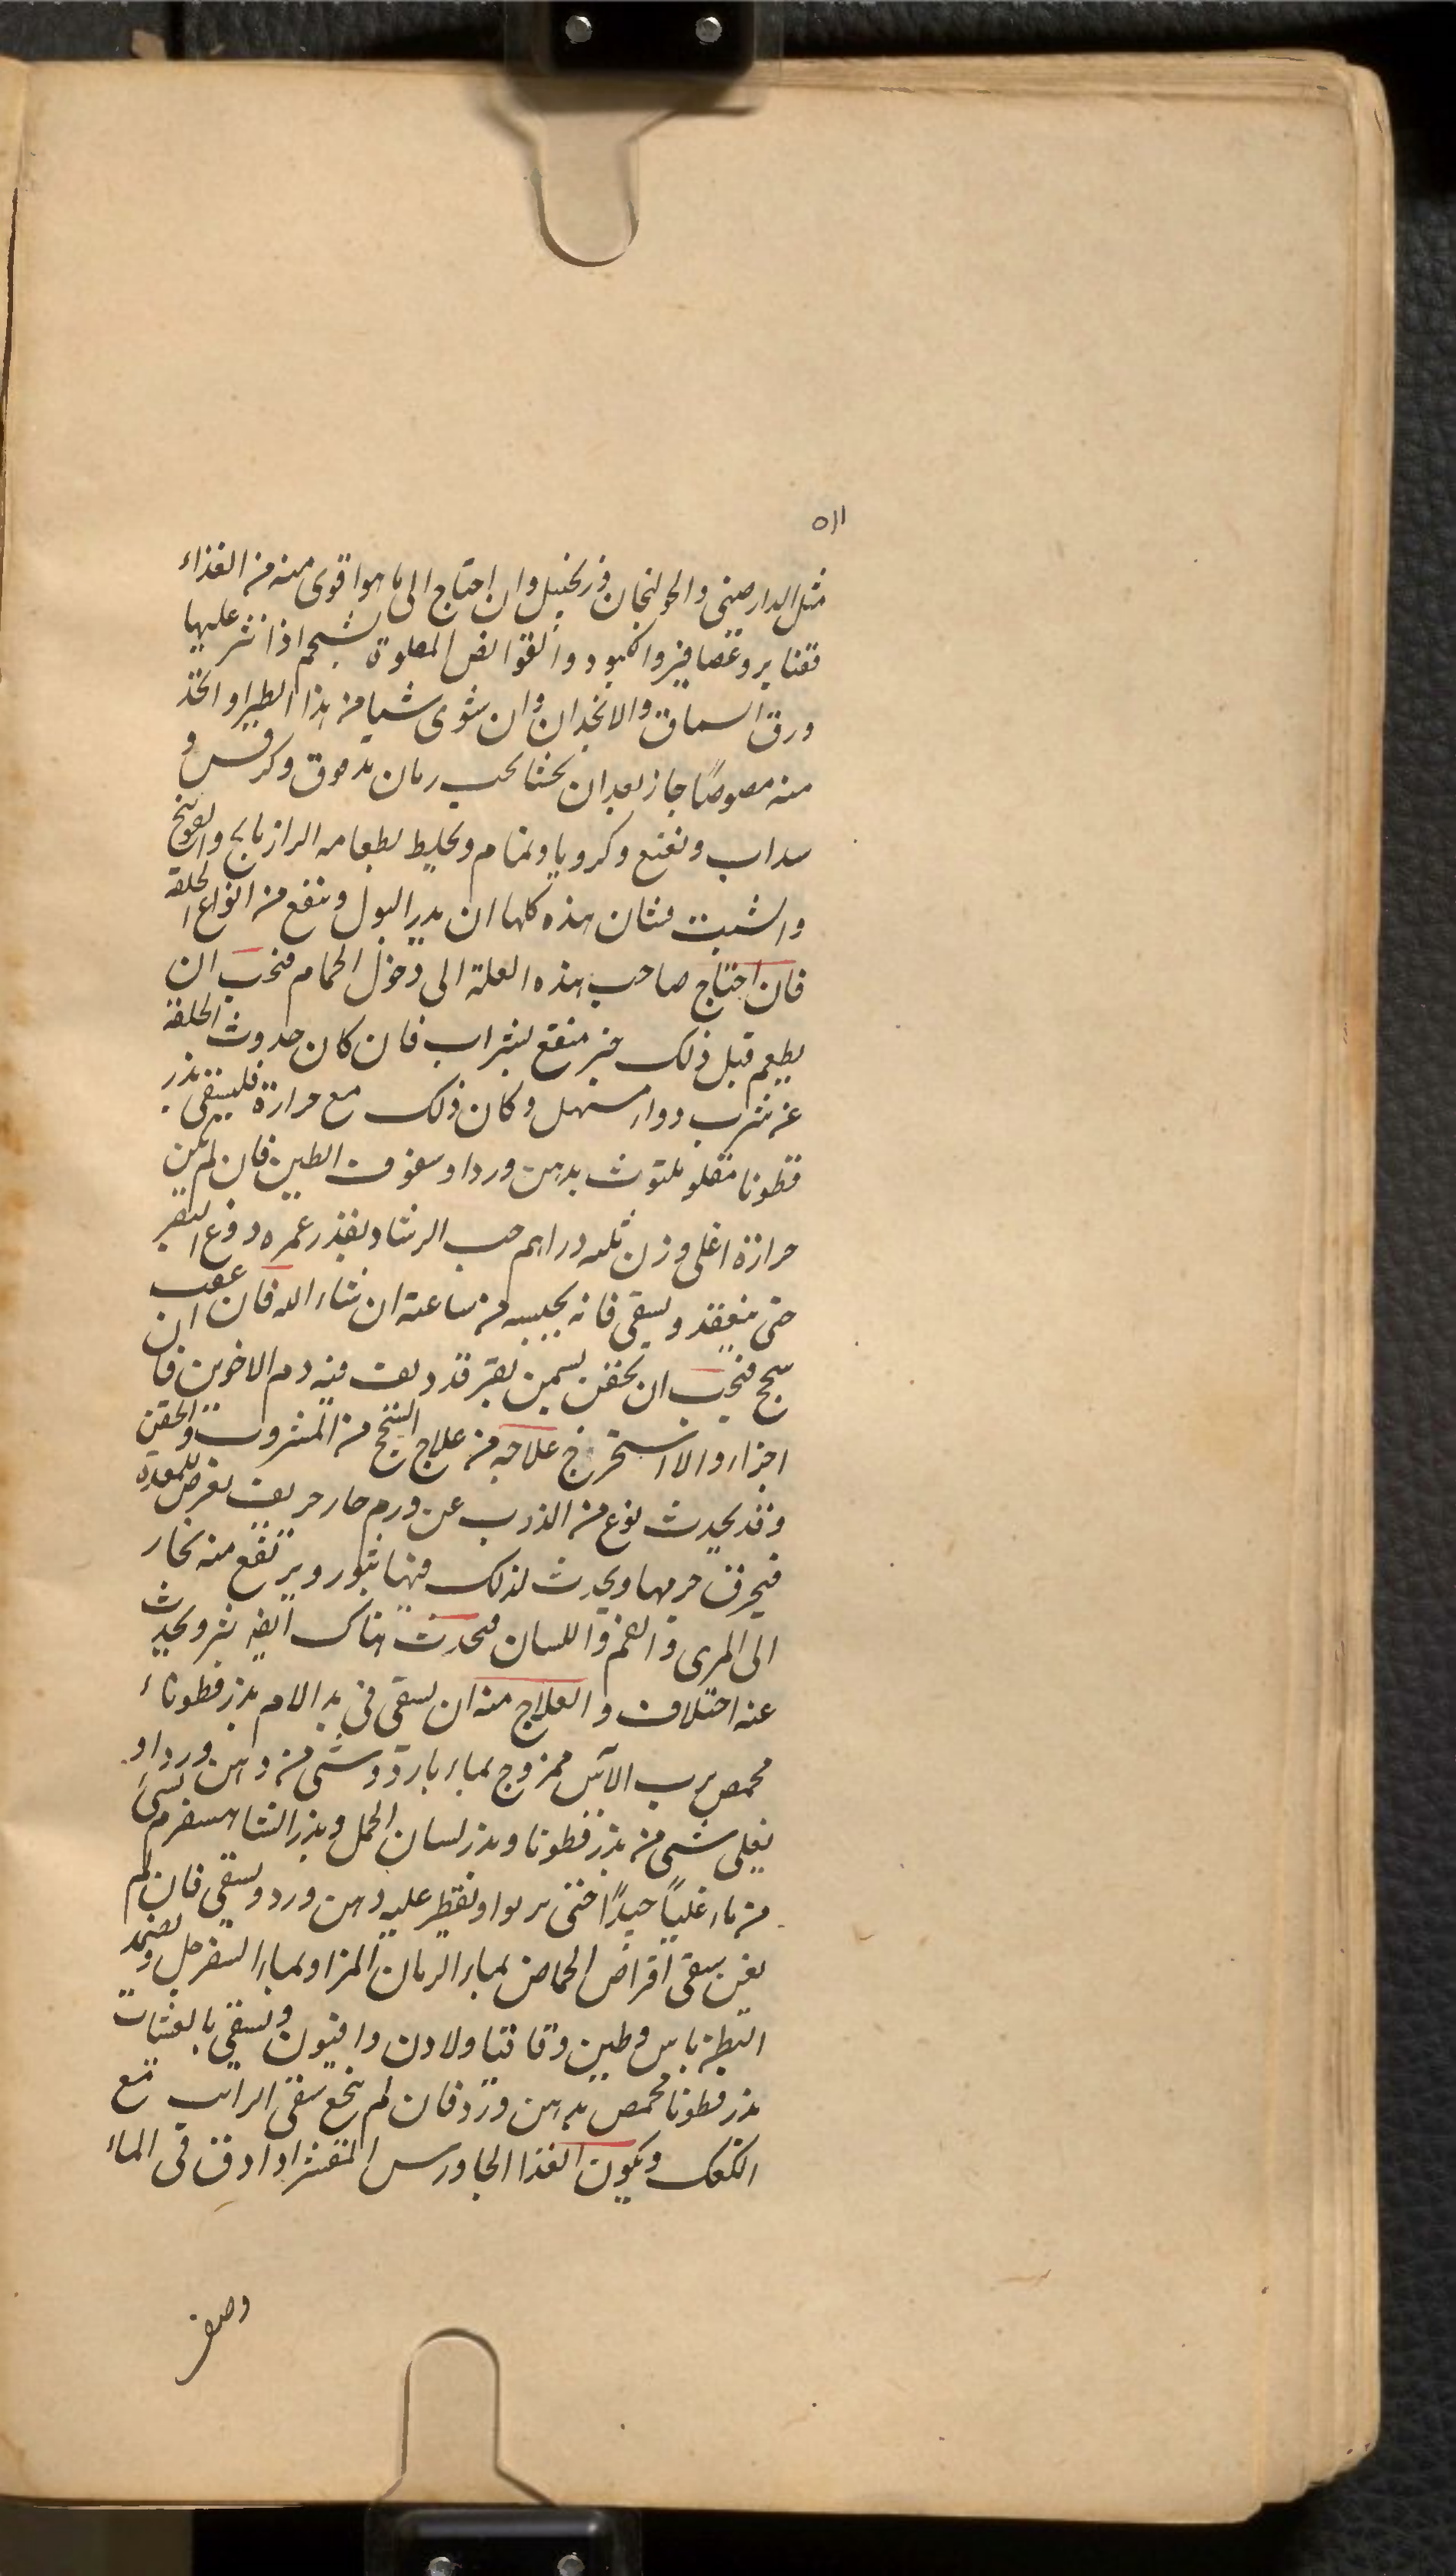 ٥١١
مثل الدارصينى والخولنجان وزنجبيل وان احتاج الى ما هو اقوى منه من الغذاء
فقنابر وعصافير والكبود والقوانص المعلوة بشحم اذا نثر عليها
ورق السماق والانجدان وان شوى شيا من هذا الطير او اتخذ
منه مصوصًا جاز بعد ان يحشا بحب رمان مدقوق وكرفس و
سداب ونعنع وكرويا ونمام ويخلط بطعامه الرازيانج والفوتنج
والشبت فشان هذه كلها ان يدر البول وينفع من انواع الخلفة
فان احتاج صاحب هذه العلة الى دخول الحمام فيجب ان
يطعم قبل ذلك خبز منقع بشراب فان كان حدوث الخلفة
عن شرب دواء مسهل وكان ذلك مع حرارة فليسقى بذر
قطونا مقلو ملتوث بدهن ورد او سفوف الطين فان لم يكن
حرارة اغلى وزن ثلثه دراهم حب الرشاد بقدر غمره دوغ البقر
حتى ينعقد ويسقى فانه يحبسه من ساعته ان شاء الله فان عقب
سحج فيجب ان يحقن بسمن بقر قد ديف فيه دم الاخوين فان
اجزاء والا استخرج علاجه من علاج السحج من المشروب والحقن
وقد يحدث نوع من الذرب عن ورم حار حريف يعرض للمعدة
فيحرق جرمها ويحدث لذلك فيها بثور ويرتفع منه بخار
الى المرى والفم واللسان فيحدث هناك ايضا بثر ويحدث
عنه اختلاف والعلاج منه ان يسقى فى بدا الامر بذر قطوناء
محمص برب الآس ممزوج بماء بارد وشى من دهن ورد او
يغلى شى من بذر قطونا وبذر لسان الحمل وبذر الشاهسفرم بشىء
من ماء غليًا جيدًا حتى يربوا ويقطر عليه دهن ورد ويسقى فان لم
يغن سقى اقراص الحماض بماء الرمان المز او بماء السفرجل ويضمد
البطن باس وطين وقاقيا ولادن وافيون ويسقى بالعشيات
بذر قطونا محمص بدهن ورد فان لم ينجع سقى الرايب مع
الكعك ويكون الغذا الجاورس المقشر اذا دق فى الماء
وصفر